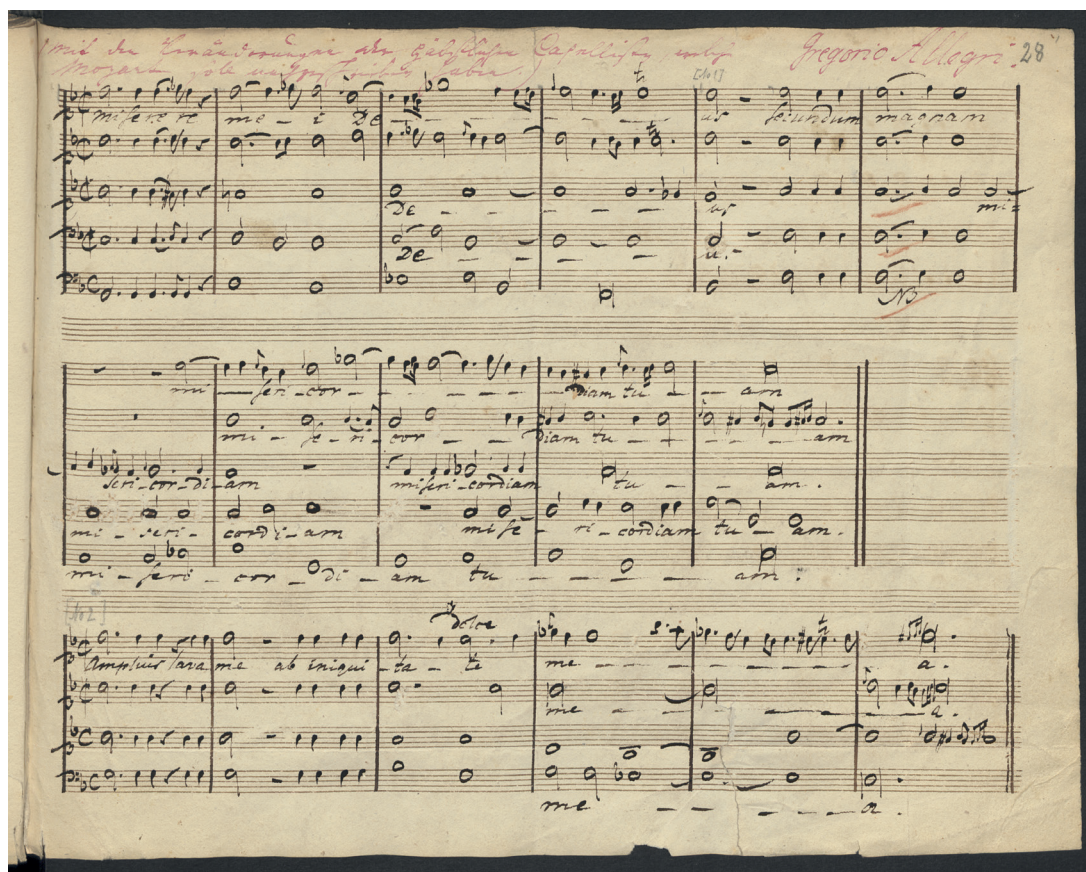 mit den Veränderungen der Capellisten Gregorio Allegri. 28
Mozart haben.)
[No 1]
miserere me - i De - - - - - - us secundum magnam
De - - - - - us mi=
De - - - - - u. -
NB
mi - seri - cor - - - - - diam tu - - - am
mi - se - ri - cor - - - diam tu - - - - - am
seri - cor - di - am misericordiam tu - - am.
mi - seri - cordi - am mise - ri - cordiam tu - am.
mi - seri - cor - di - am tu - - - - - am.
[No 2]
dolce
Amplius lava me ab iniqui - ta - te me - - - - - - - - a.
me - - - - - - - a.
me - - - - - - a.